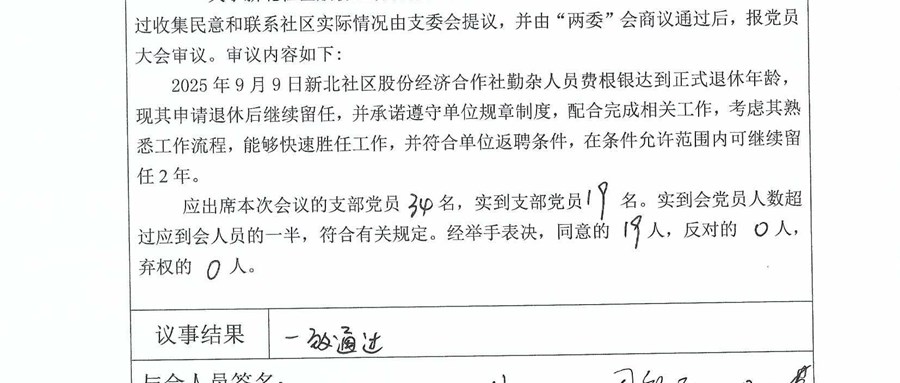 过收集民意和联系社区实际情况由支委会提议，并由“两委”会商议通过后，报党员
大会审议。审议内容如下：
2025 年 9 月 9 日新北社区股份经济合作社勤杂人员费根银达到正式退休年龄，
现其申请退休后继续留任，并承诺遵守单位规章制度，配合完成相关工作，考虑其熟
悉工作流程，能够快速胜任工作，并符合单位返聘条件，在条件允许范围内可继续留
任 2 年。
应出席本次会议的支部党员 34 名，实到支部党员 19 名。实到会党员人数超
过应到会人员的一半，符合有关规定。经举手表决，同意的 19 人，反对的 0 人，
弃权的 0 人。
议事结果 一致通过
与会人员签名：